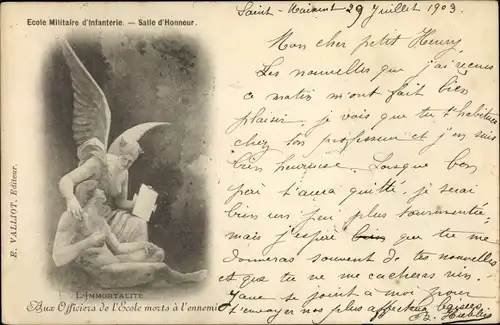 Ecole Militaire d'Infanterie. — Salle d'Honneur.
Saint-Maixent 29 Juillet 1903.
Mon cher petit Henry
Les nouvelles que j'ai reçues
ce matin m'ont fait bien
plaisir. je vois que tu t'habitues
chez ton professeur et j'en suis
bien heureuse. Lorsque bon
père t'aura quitté, je serai
bien un peu plus tourmentée
mais j'espère que tu me
donneras souvent de tes nouvelles
et que tu ne me cacheras rien.
se joint à moi pour
t'envoyer nos plus affectueux baisers.
R. VALLIOT, Editeur.
L'IMMORTALITÉ
Aux Officiers de l'Ecole morts à l'ennemi